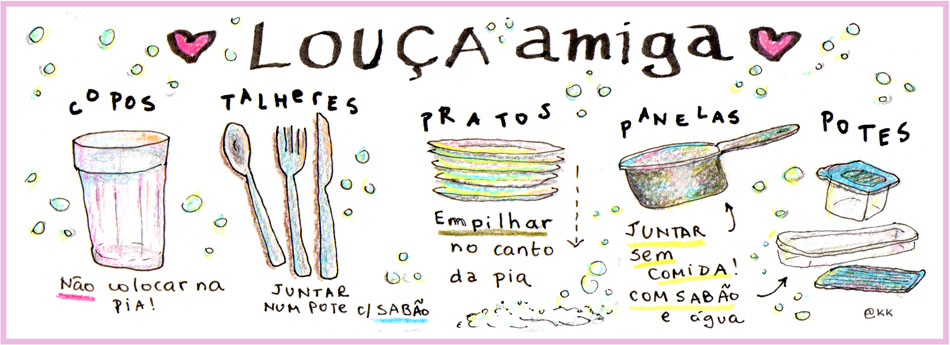 LOUÇA amiga
COPOS
Não colocar na
PIA!
TALHERES
JUNTAR
NUM POTE C/ SABÃO
PRATOS
Empilhar
no canto
da pia
PANELAS
JUNTAR
sem
COMIDA!
COM SABÃO
e água
POTES
@KK